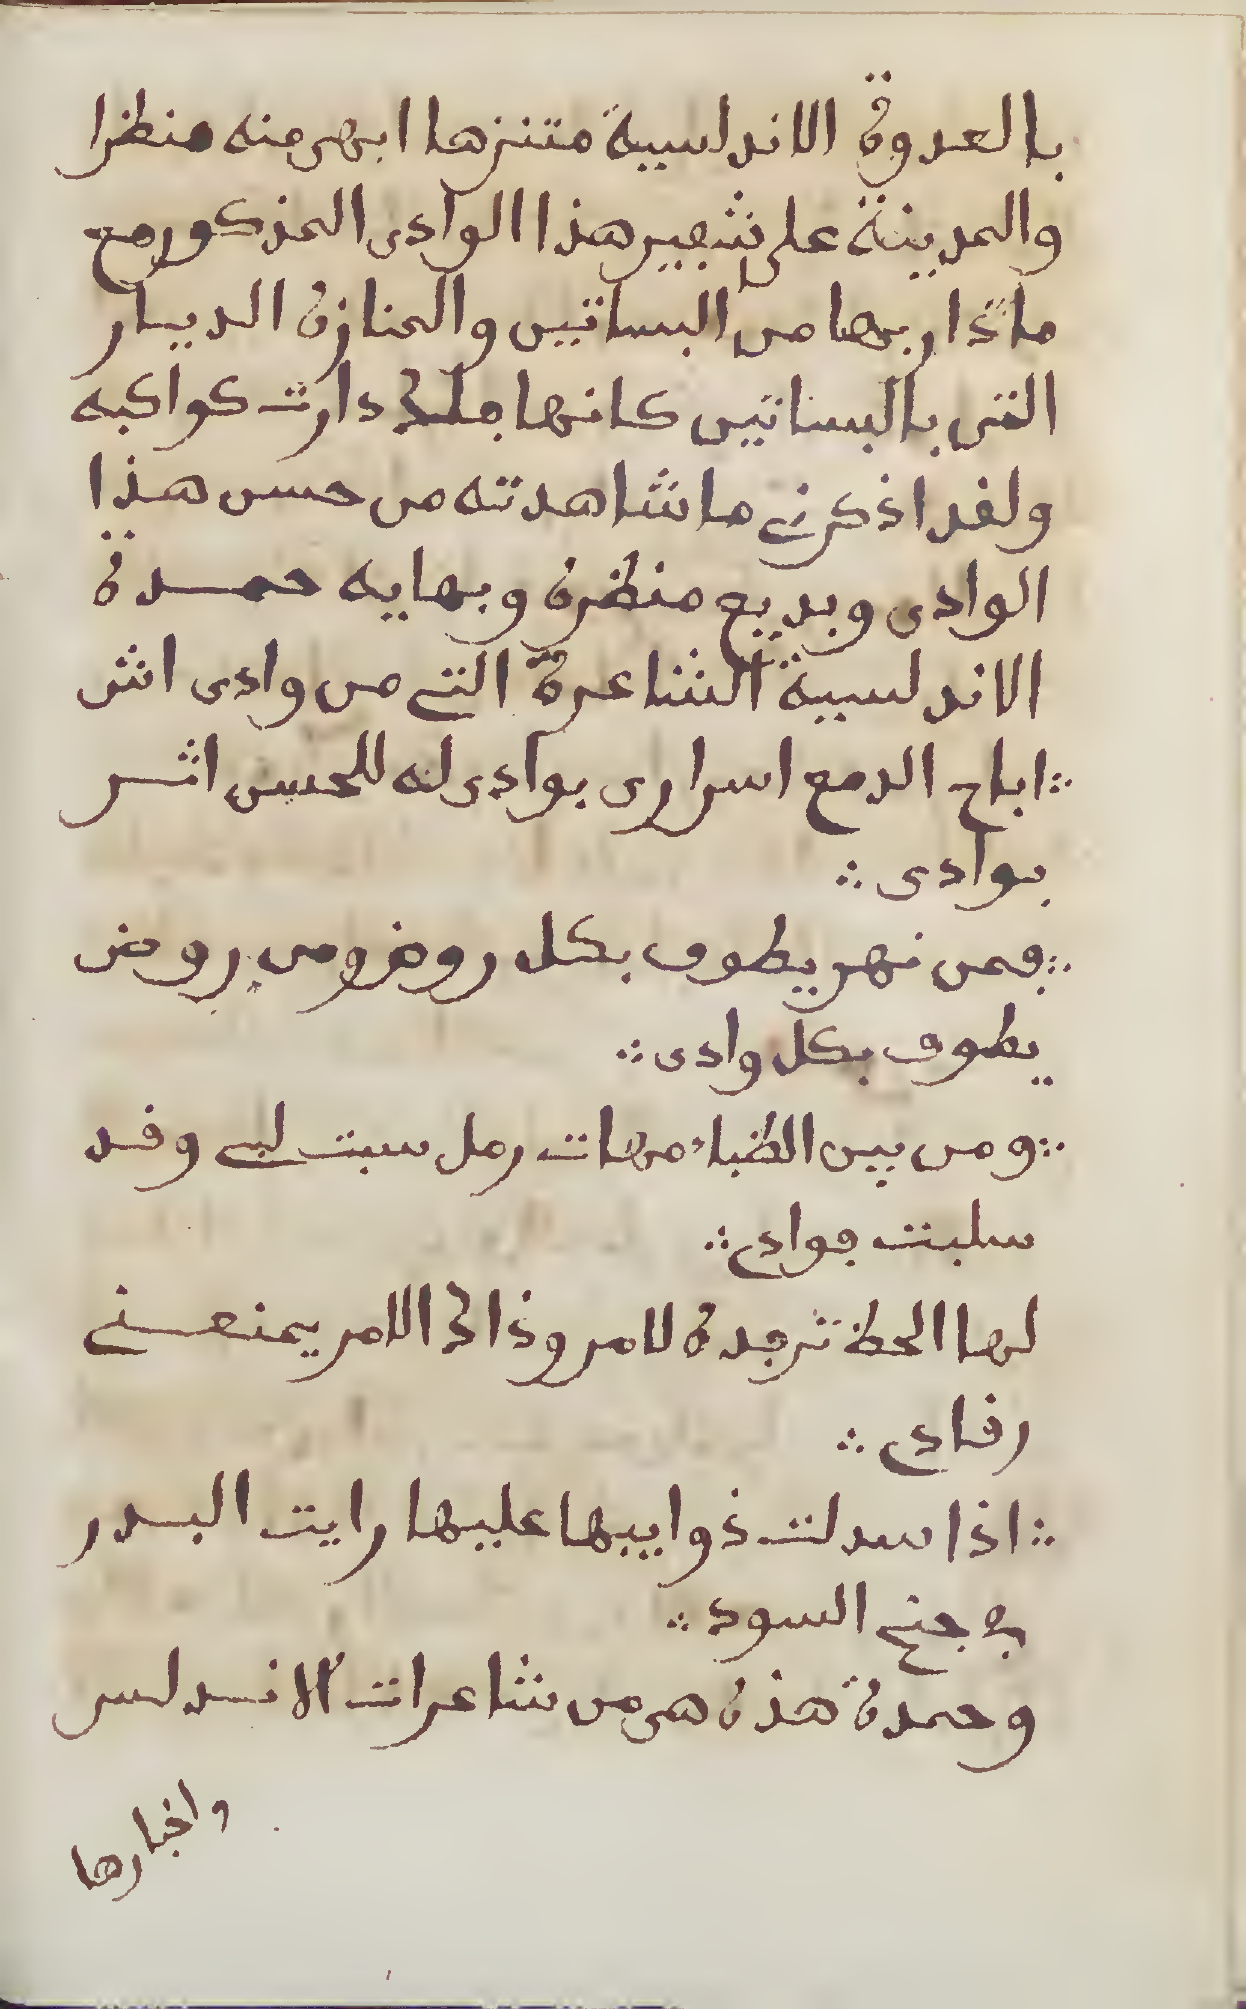 بالعدوة الاندلسية متنزها ابهى منه منظرا
والمدينة على شفير هذا الوادى المذكور مع
ما دار بها من البساتين والمنازه الديار
التى بالبساتين كانها فلك دارت كواكبه
ولقد اذكرنى ما شاهدته من حسن هذا
الوادى وبديع منظره وبهايه حمدة
الاندلسية الشاعرة التى من وادى اش
∴ اباح الدمع اسرارى بوادى له للحسن اثر
بوادى ∴
∴ فمن نهر يطوف بكل روض ومن روض
يطوف بكل وادى ∴
∴ ومن بين الظباء مهات رمل سبت لبى وقد
سلبت فوادى ∴
لها الحظ ترقده لامر وذاك الامر يمنعنى
رقادى ∴
∴ اذا سدلت ذواييبها عليها رايت البدر
فى جنح السود ∴
وحمدة هذه هى من شاعرات الاندلس
واخبارها